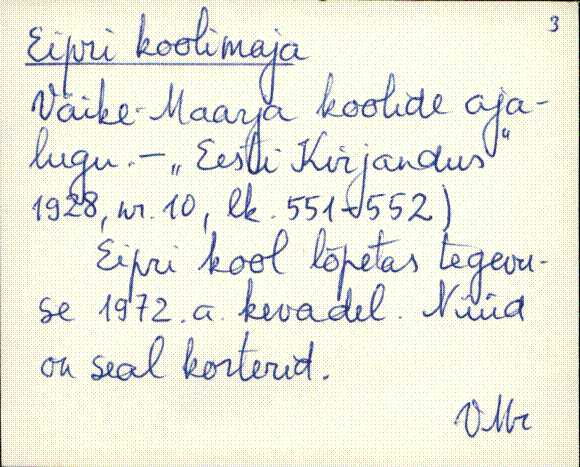 3
Eipri koolimaja
Väike-Maarja koolide aja-
lugu. – „Eesti Kirjandus"
1928, nr. 10, lk. 551-552)
Eipri kool lõpetas tegevu-
se 1972. a. kevadel. Nüüd
on seal korterid.